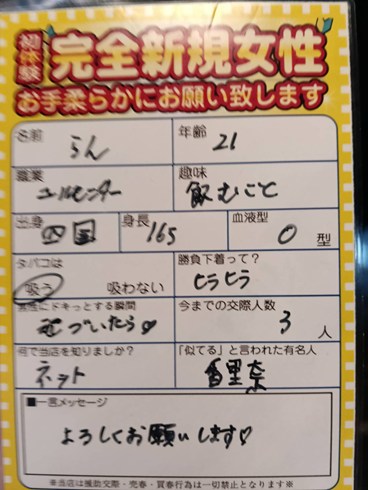 初体験
完全新規女性
お手柔らかにお願い致します
名前 らん 年齢 21
職業 コールセンター 趣味 飲むこと
出身 四国 身長 165 血液型 O 型
タバコは 勝負下着って?
吸う 吸わない ヒラヒラ
異性にドキっとする瞬間 今までの交際人数
気づいたら♡ 3 人
何で当店を知りましたか? 「似てる」と言われた有名人
ネット 香里奈
■一言メッセージ
よろしくお願いします♡
※当店は援助交際・売春・買春行為は一切禁止となります※